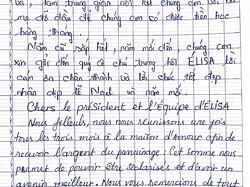 và, tâm trung gian nơi nơi chúng con với ba
mẹ đỡ đầu để chúng con có chức tiền học
hàng tháng.
Năm cũ sắp hết, năm mới đến chúng con
xin gởi đến quý cô chú trong hội ELISA lời
cảm ơn chân thành và lời chúc tốt đẹp
nhân dịp lễ Noel và năm mới.
Chers le président et l'équipe d'ELISA
Nous filleuls, nous nous réunissons une fois
tous les trois mois à la maison d'amour afin de
recevoir l'argent du parrainage. Cet somme nous
permet de pouvoir être scolarisés et d'avoir un
avenir meilleur. Nous vous remercions de tout